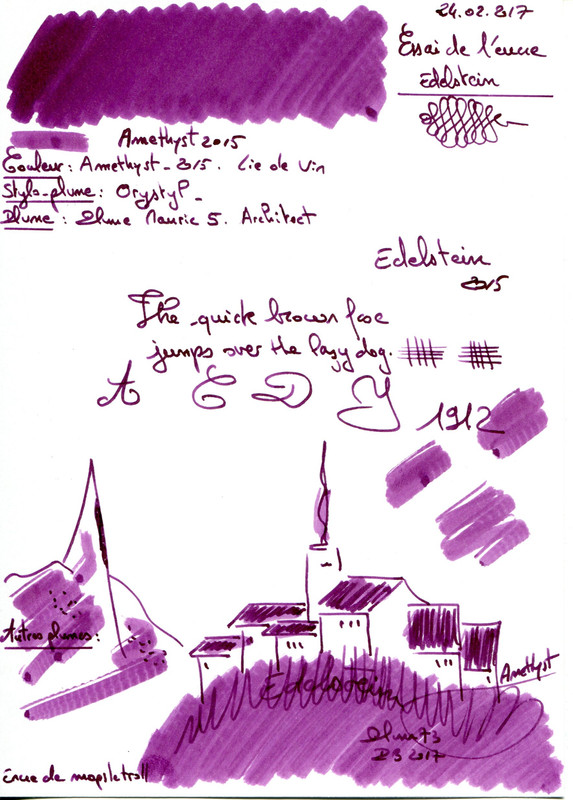 24.02.2017
Essai de l'encre
Edelstein
Amethyst 2015
Couleur: Amethyst - 2015. Lie de Vin
Stylo-plume:
Plume : 5. Architect
Edelstein
2015
The quick brown fox
jumps over the lazy dog.
A E D Y 1912
Autres plumes:
Edelstein
Amethyst
2017
Encre de